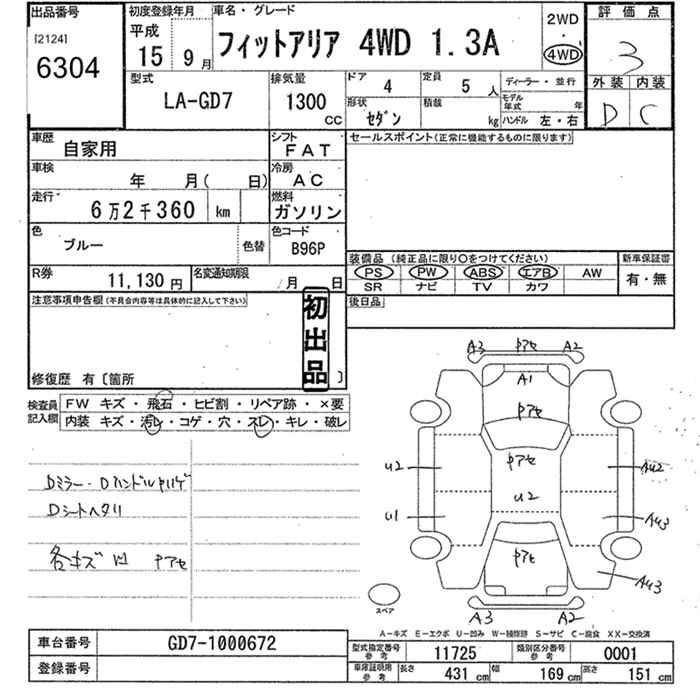 出品番号
[2124]
6304
初度登録年月
平成
15年 9月
車名・グレード
フィットアリア 4WD 1.3A
2WD
・
4WD
評価点
3
外装 内装
D C
型式
LA-GD7
排気量
1300 CC
ドア
4
定員
5 人
ディーラー・並行
モデル年式 年
形状
セダン
積載
kg
ハンドル 左・右
車歴
自家用
シフト
FAT
セールスポイント(正常に機能するものに限ります)
車検
年 月( 日)
冷房
AC
走行
6万2千360 km
燃料
ガソリン
色
ブルー
色替
色コード
B96P
装備品 (純正品に限り○をつけてください)
新車保証書
PS PW ABS エアB AW
有・無
SR ナビ TV カワ
R券
11,130 円
名変通知期限
月 日
後日品
注意事項申告欄(不具合内容等は具体的に記入して下さい)
初出品
修復歴 有〔箇所 〕
検査員記入欄
FW キズ・飛石・ヒビ割・リペア跡・×要
内装 キズ・汚レ・コゲ・穴・スレ・キレ・破レ
A3 Pアセ A2
A1
Pアセ
Pアセ
U2
U2
U1
AU2
AU3
AU3
Pアセ
A3 A2
Dミラー・Dハンドル
Dシートヘタリ
各キズ 凹 Pアセ
スペア
A-キズ E-エクボ U-凹み W-補修跡 S-サビ C-腐食 XX-交換済
車台番号
GD7-1000672
登録番号
型式指定番号 参考
11725
類別区分番号 参考
0001
車庫証明用 参考
長さ 431 cm
幅 169 cm
高さ 151 cm